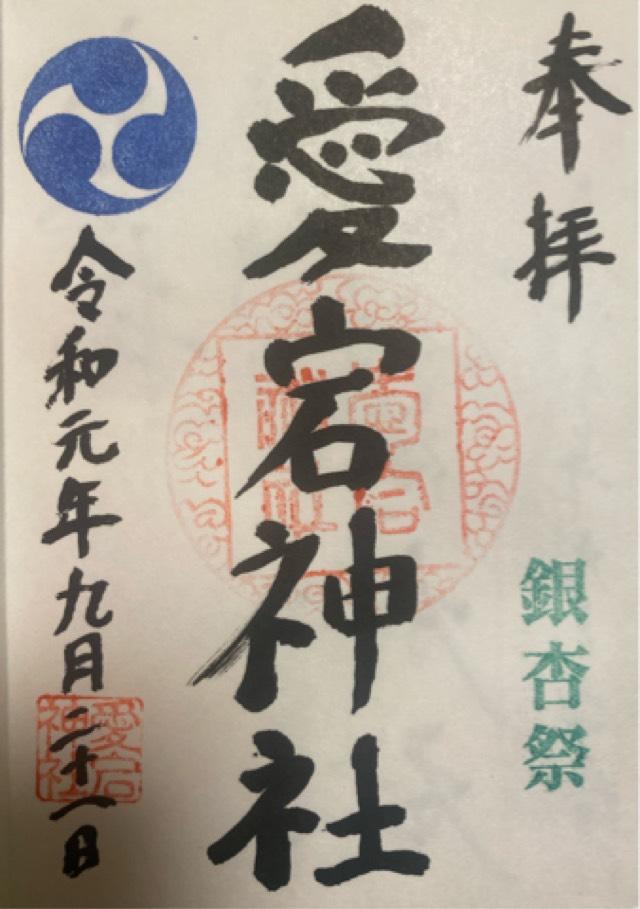 奉拝
銀杏祭
愛宕神社
愛宕神社
令和元年九月二十一日
愛宕神社